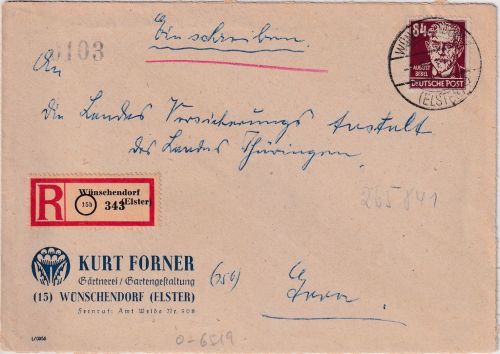 Einschreiben.
0103
84
AUGUST
BEBEL
DEUTSCHE POST
(ELSTER)
An
die Landes Versicherungs Anstalt
des Landes Thüringen
265841
R
Wünschendorf
(Elster)
15b
343
KURT FORNER
Gärtnerei / Gartengestaltung
(15) WÜNSCHENDORF (ELSTER)
Fernruf: Amt Weida Nr. 508
(15b)
Gera.
0-6519